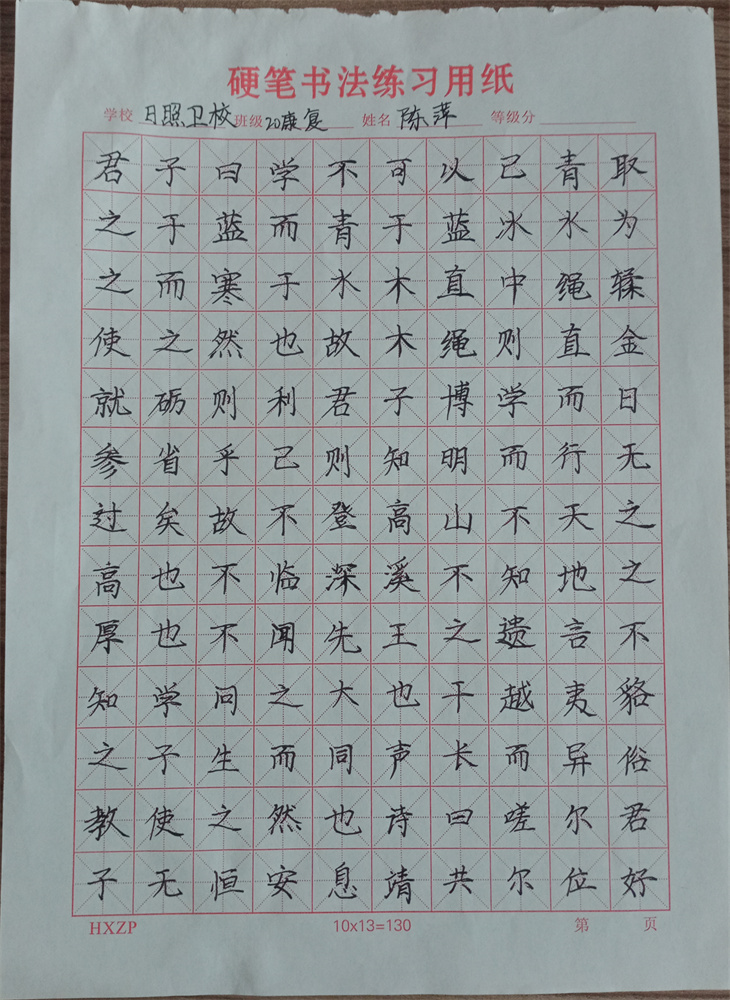 硬笔书法练习用纸
学校 日照卫校 班级 20康复 姓名 陈萍 等级分
君子曰学不可以已青取
之于蓝而青于蓝冰水为
之而寒于水木直中绳輮
使之然也故木绳则直金
就砺则利君子博学而日
参省乎己则知明而行无
过矣故不登高山不天之
高也不临深溪不知地之
厚也不闻先王之遗言不
知学问之大也干越夷貉
之子生而同声长而异俗
教使之然也诗曰嗟尔君
子无恒安息靖共尔位好
HXZP 10x13=130 第 页